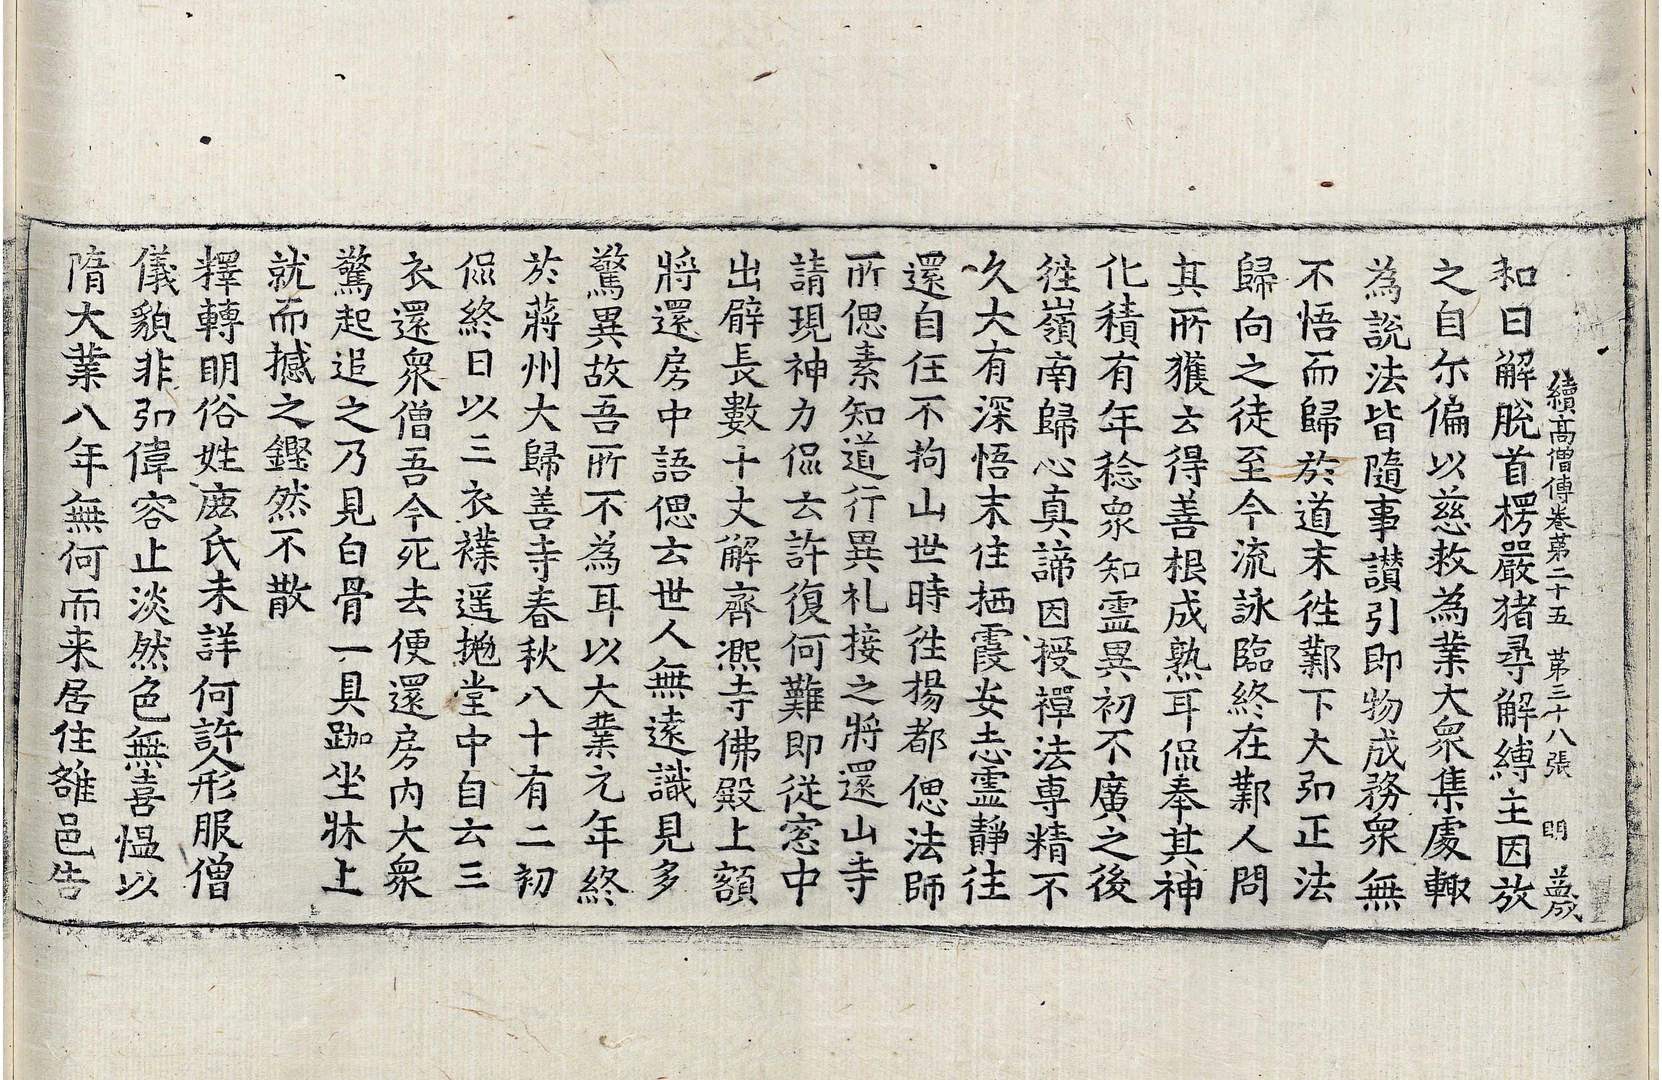 續高僧傳卷第二十五 第三十八張 明
和曰解脫首楞嚴猪尋解縛主因放
之自尒偏以慈救為業大衆集處輙
為說法皆隨事讃引即物成務衆無
不悟而歸於道末徃鄴下大弘正法
歸向之徒至今流詠臨終在鄴人問
其所獲云得善根成熟耳侃奉其神
化積有年稔衆知霊異初不廣之後
徃嶺南歸心真諦因授禪法專精不
久大有深悟末住栖霞安志霊靜往
還自任不拘山世時徃揚都偲法師
所偲素知道行異礼接之將還山寺
請現神力侃云許復何難即從窓中
出臂長數十丈解齊凞寺佛殿上額
將還房中語偲云世人無逺識見多
驚異故吾所不為耳以大業元年終
於蔣州大歸善寺春秋八十有二初
侃終日以三衣襆遥抛堂中自云三
衣還衆僧吾今死去便還房内大衆
驚起追之乃見白骨一具跏坐牀上
就而撼之鏗然不散
釋轉明俗姓鹿氏未詳何許人形服僧
儀貌非弘偉容止淡然色無喜愠以
隋大業八年無何而来居住雒邑告